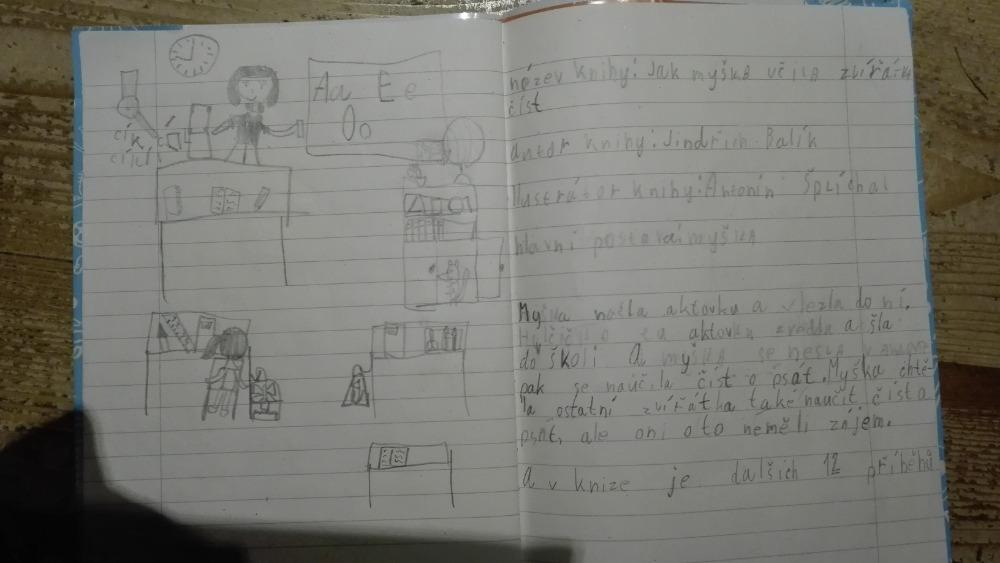 Aa E e
Oo
crk
crrrr
název knihy: Jak myška učila zvířátka
číst
autor knihy: Jindřich Balík
Ilustrátor knihy: Antonín Šplíchal
hlavní postava: myška
Myška našla aktovku a vlezla do ní.
aktovku zvedla a šla
do školi a myška se nesla
pak se naučila číst o psát. Myška chtě-
la ostatní zvířátka také naučit číst a
psát, ale oni o to neměli zájem.
a v knize je dalšich 12 příběhů